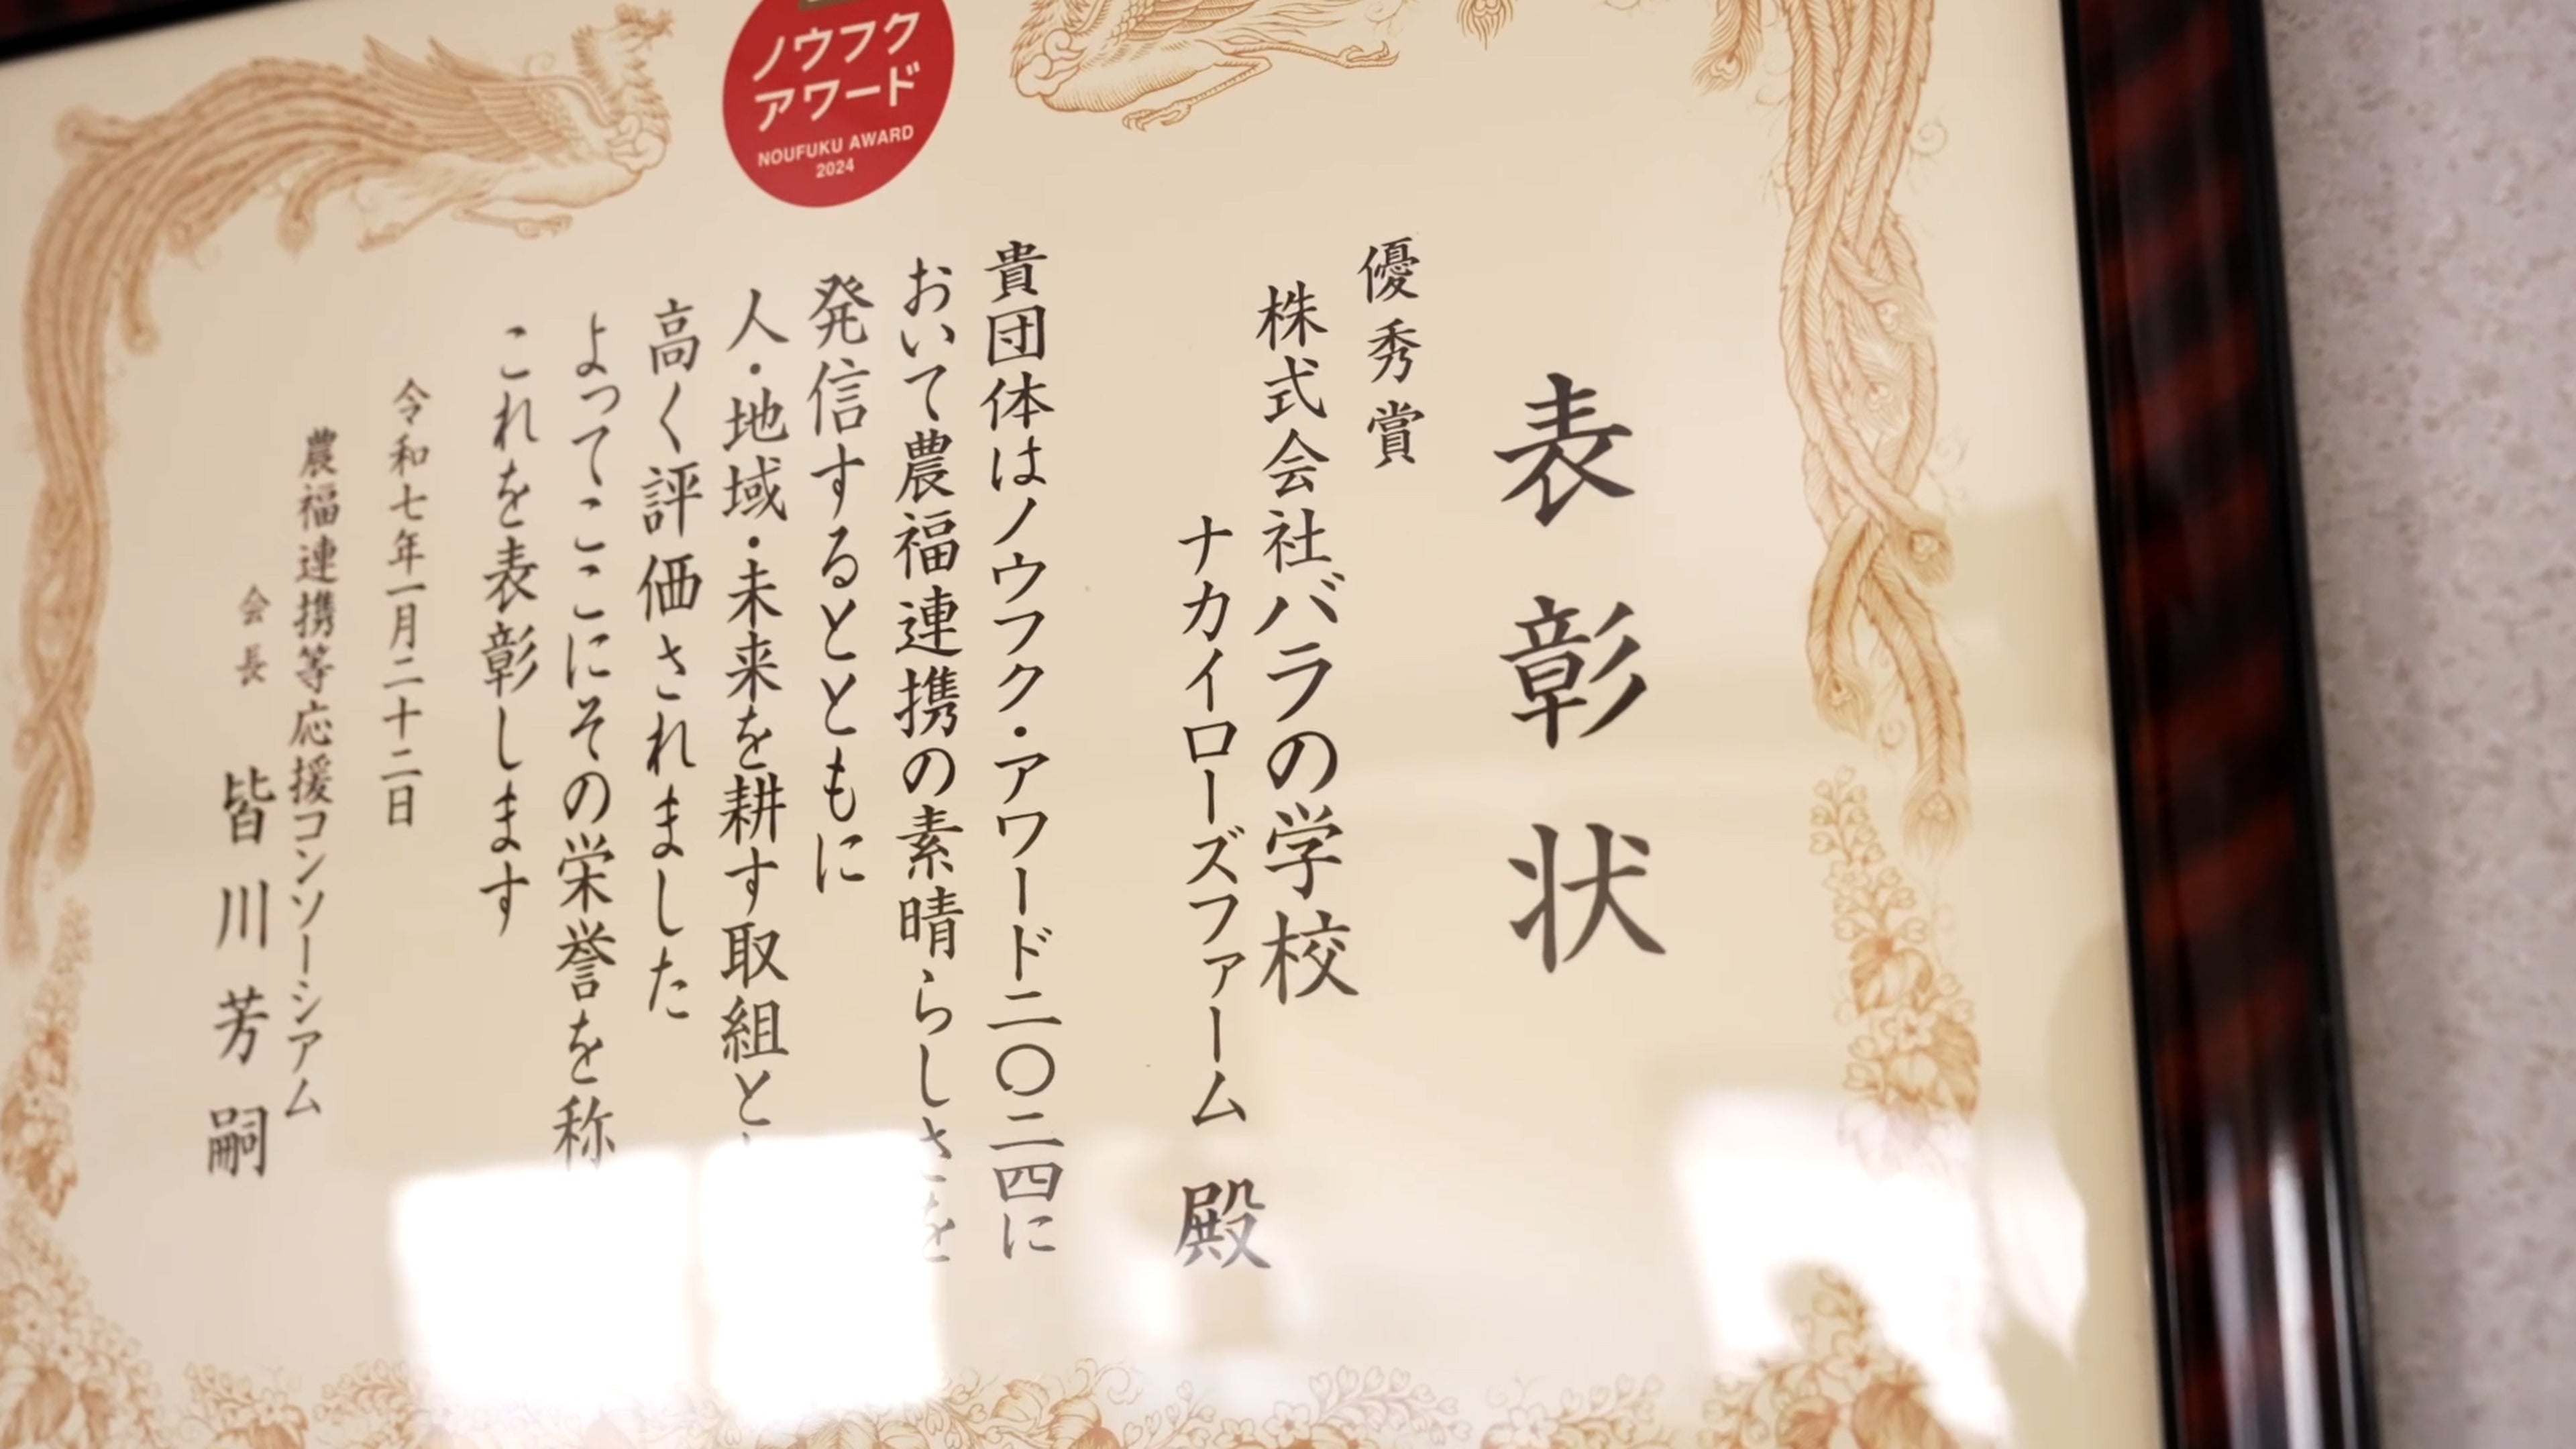 ノウフク
アワード
NOUFUKU AWARD
2024
表彰状
優秀賞
株式会社バラの学校
ナカイローズファーム 殿
貴団体はノウフク・アワード二〇二四に
おいて農福連携の素晴らしさを
発信するとともに
人・地域・未来を耕す取組と
高く評価されました
よってここにその栄誉を称
これを表彰します
令和七年一月二十二日
農福連携等応援コンソーシアム
会長 皆川芳嗣